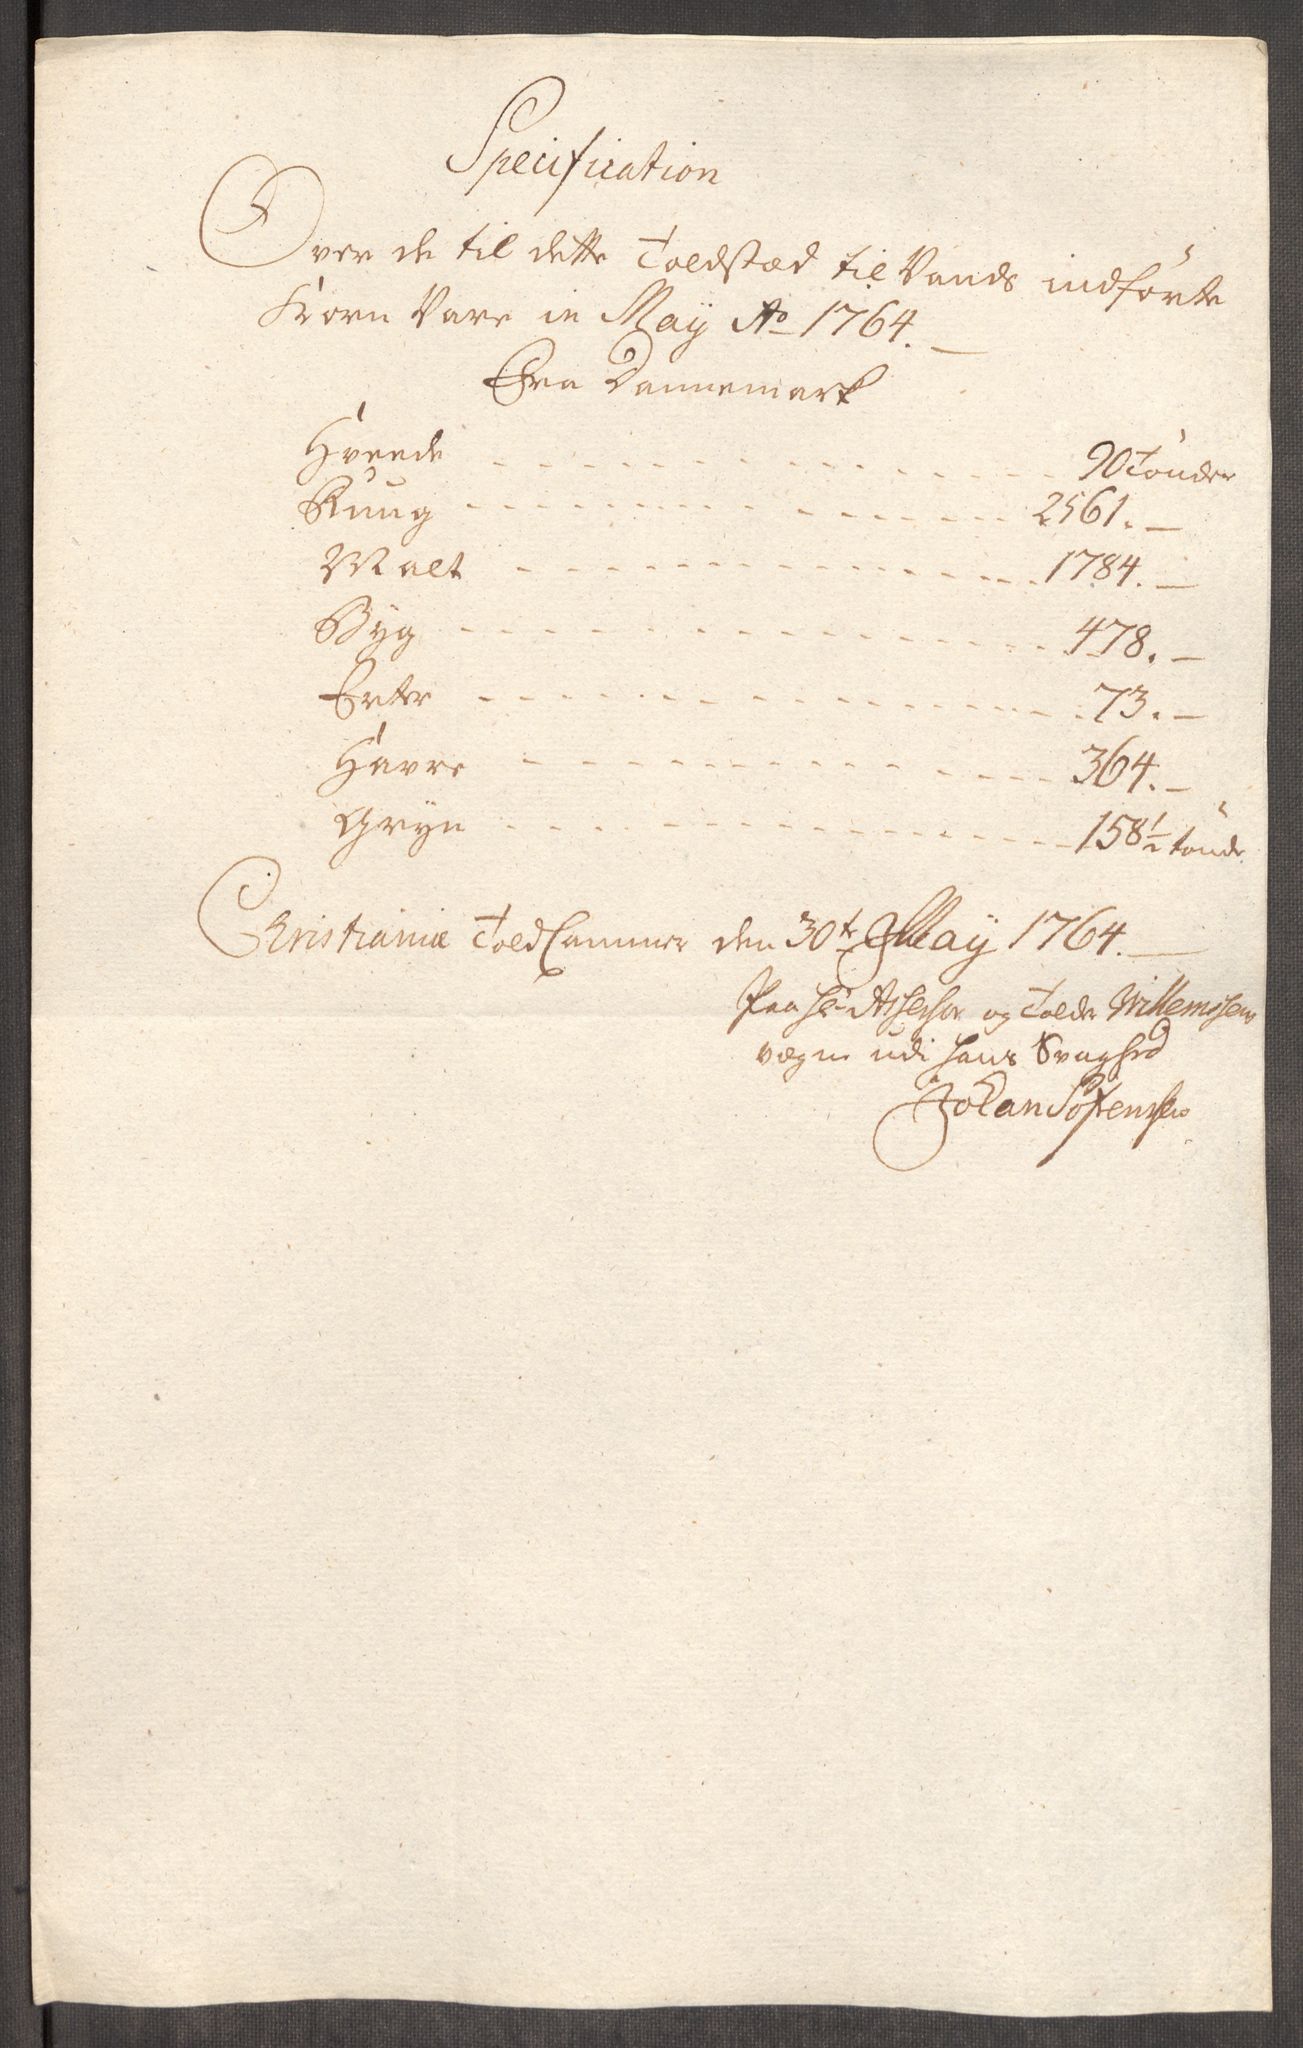 Specification
Over de til dette Toldstæd til Vands indförte
Korn Vare in Maÿ Ao 1764.
Fra Dannemark
Hveede - - - 90 Tönder
Ruug - - - 2561. —
Malt - - - 1784. —
Byg - - - 478. —
Erter - - - 73. —
Havre - - - 364. —
Gryn - - - 158 1/2 tönd.
Christiania Told Cammer den 30te Maÿ 1764. —
Paa Hr. Assessor og Tolder Willemssens
vegne udi hans Svaghed
Johan